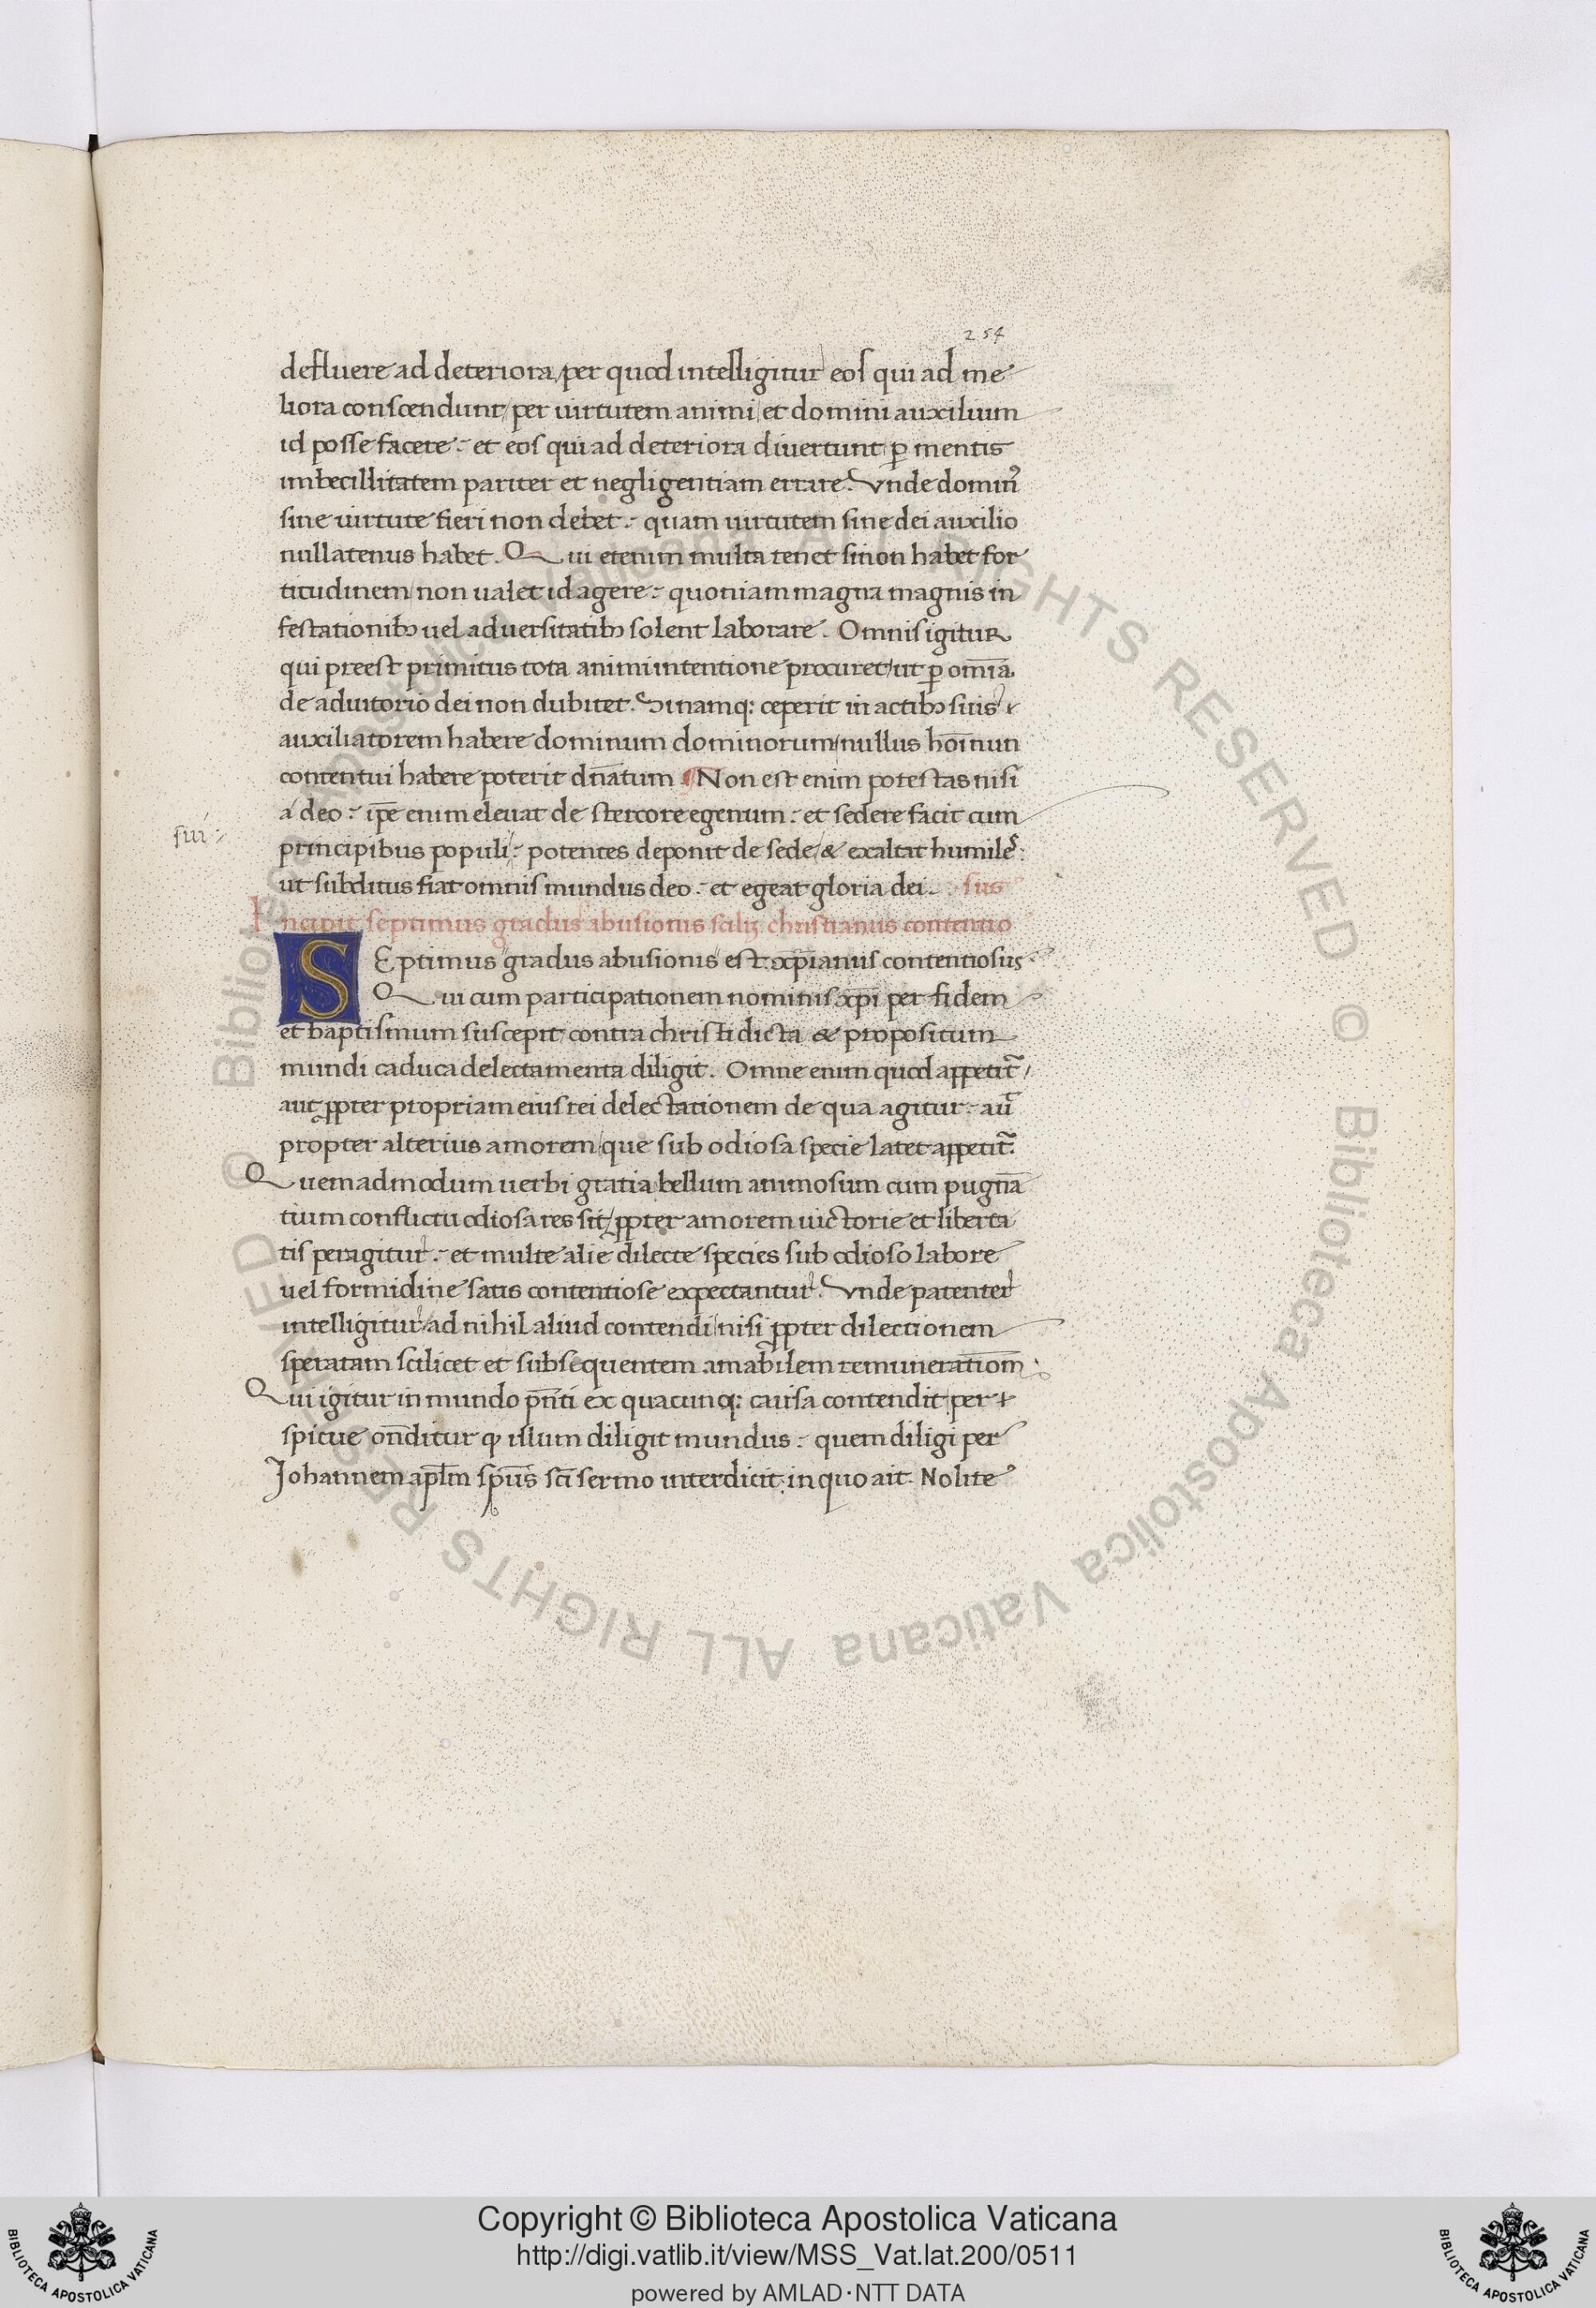 254
defluere ad deteriora / per quod intelligitur eos qui ad me
liora conscendunt / per uirtutem animi / et domini auxilium
id posse facere : et eos qui ad deteriora diuertunt ꝑ mentis
imbecillitatem pariter et negligentiam errare. Vnde dominꝰ
sine uirtute fieri non debet : quam uirtutem sine dei auxilio
nullatenus habet. Qui etenim multa tenet si non habet for
titudinem / non ualet id agere : quoniam magna magnis in
festationibꝫ uel aduersitatibꝫ solent laborare. Omnis igitur
qui preest primitus tota animi intentione procuret / ut ꝑ om̄ia
de adiutorio dei non dubitet. Si namqꝫ ceperit in actibꝫ suis
auxiliatorem habere dominum dominorum / nullus hoī nun
contentui habere poterit dn̄atum ¶ Non est enim potestas nisi
a deo : ip̄e enim eleuat de stercore egenum : et sedere facit cum
sui :
principibus populi : potentes deponit de sede / & exaltat humiles :
ut subditus fiat omnis mundus deo : et egeat gloria dei. sus
Incipit septimus gradus abusionis scilꝫ christianus contentio
SEptimus gradus abusionis est xp̄ianus contentiosus
Qui cum participationem nominis xp̄i per fidem
et baptismum suscepit / contra christi dicta & propositum
mundi caduca delectamenta diligit. Omne enim quod appetit᷑ /
aut ꝓpter propriam eius rei delectationem de qua agitur : aut᷑
propter alterius amorem / que sub odiosa specie latet appetit᷑.
Quemadmodum uerbi gratia bellum animosum cum pugnā
tium conflictu odiosa res sit / ꝓpter amorem uictorie et liberta
tis peragitur : et multe alie dilecte species sub odioso labore
uel formidine satis contentiose expectantur. Vnde patenter
intelligitur / ad nihil aliud contendi / nisi ꝓpter dilectionem
speratam scilicet et subsequentem amabilem remunerationē.
Qui igitur in mundo pn̄ti ex quacunqꝫ causa contendit / per
spicue on̄ditur ꝙ illum diligit mundus : quem diligi per
Johannem apl̄m spūs sc̄i sermo interdicit. in quo ait. Nolite
Copyright © Biblioteca Apostolica Vaticana
http://digi.vatlib.it/view/MSS_Vat.lat.200/0511
powered by AMLAD·NTT DATA
BIBLIOTECA APOSTOLICA VATICANA
BIBLIOTECA APOSTOLICA VATICANA
© Biblioteca Apostolica Vaticana ALL RIGHTS RESERVED © Biblioteca Apostolica Vaticana ALL RIGHTS RESERVED